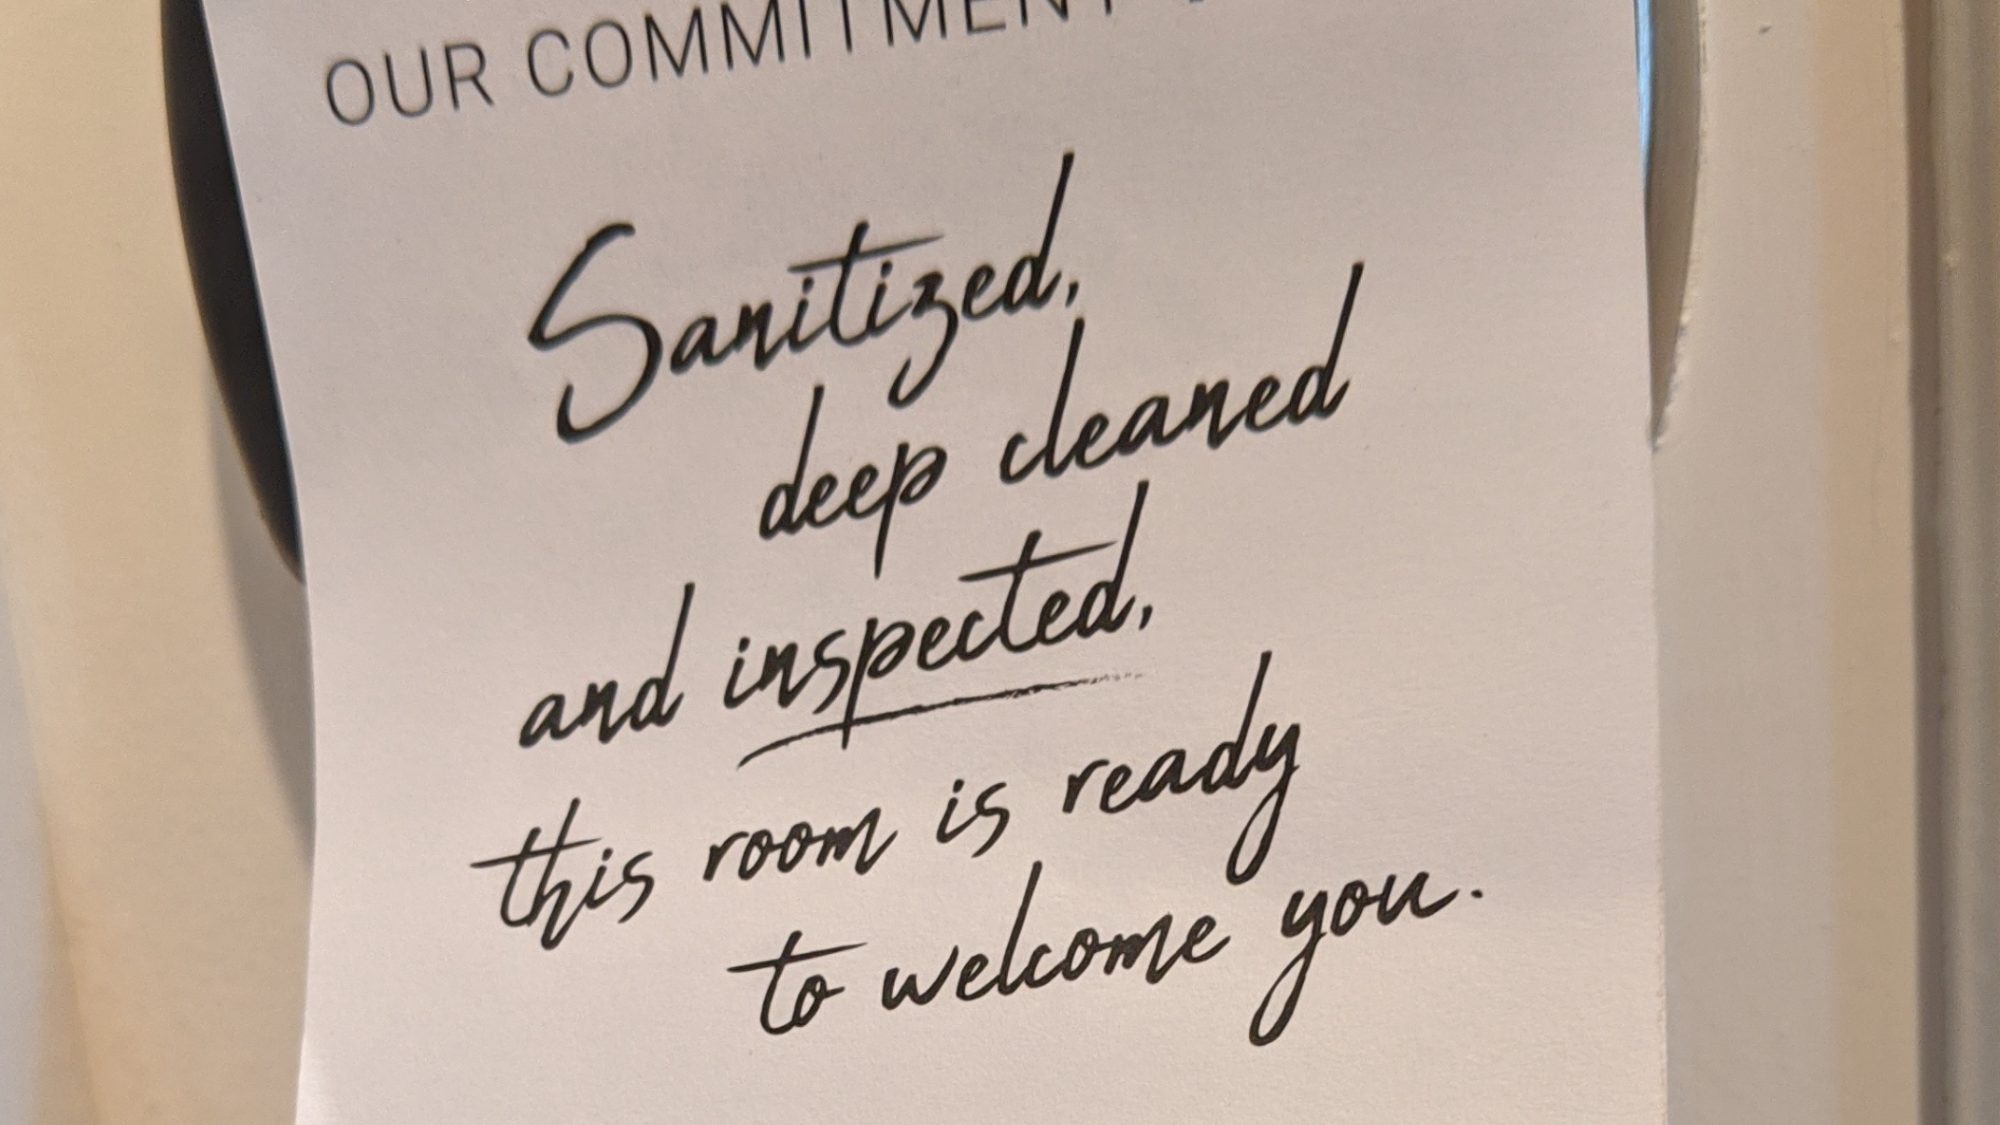 OUR COMMITMENT
Sanitized,
deep cleaned
and inspected,
this room is ready
to welcome you.